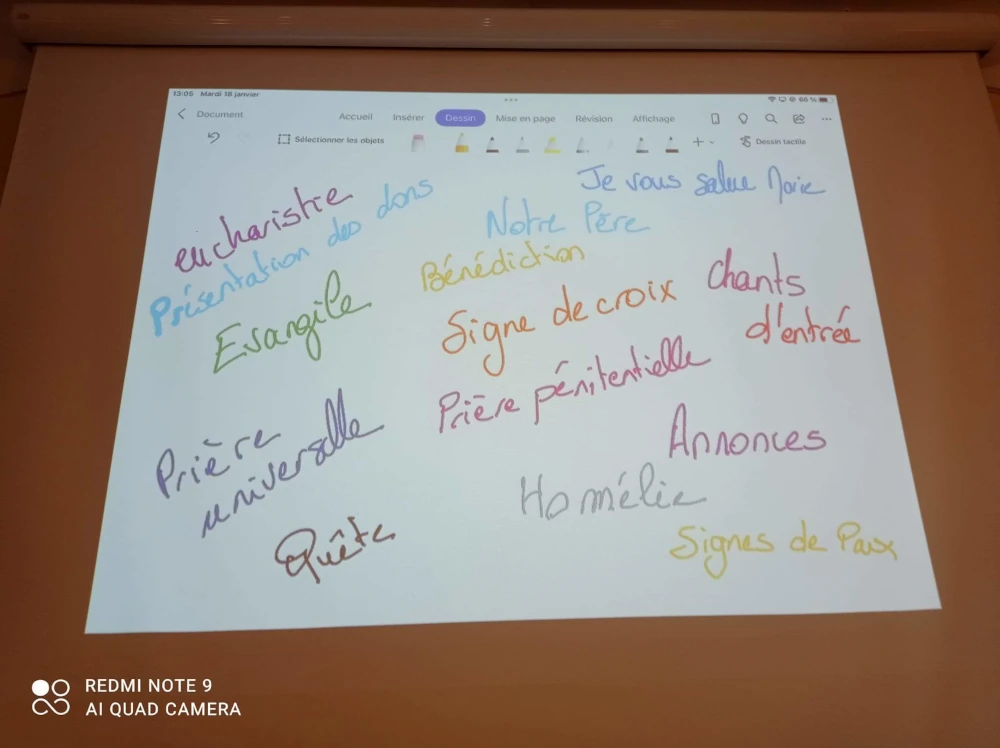 13:05 Mardi 18 janvier
66 %
Document
Accueil Insérer Dessin Mise en page Révision Affichage
Sélectionner les objets
Dessin tactile
eucharistie
Présentation des dons
Je vous salue Marie
Notre Père
Bénédiction
Evangile
Signe de croix
Chants
d'entrée
Prière pénitentielle
Prière
universelle
Annonces
Homélie
Quête
Signes de Paix
REDMI NOTE 9
AI QUAD CAMERA